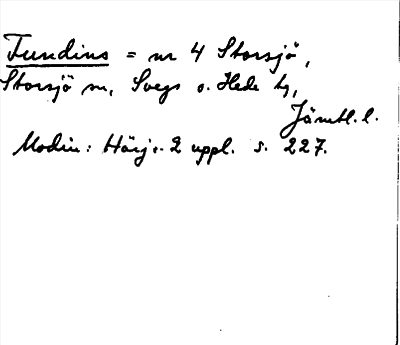 Fundins = nr 4 Storsjö,
Storsjö sn, Svegs o. Hede tg,
Jämtl. l.
Modin: Härj. 2 uppl. s. 227.